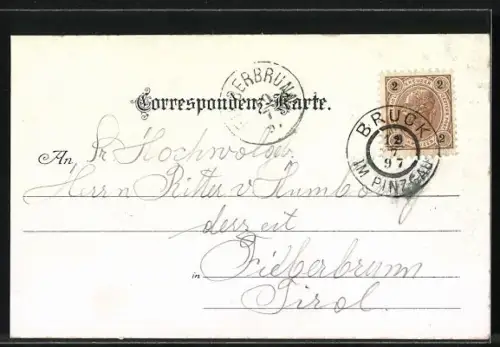 FIEBERBRUNN
Correspondenz-Karte.
2 2
BRUCK
12
7
97
IM PINZGAU
An
Sr Hochwolgeb.
Herrn Ritter v. Humbo
derzeit
in Fieberbrunn
Tirol.